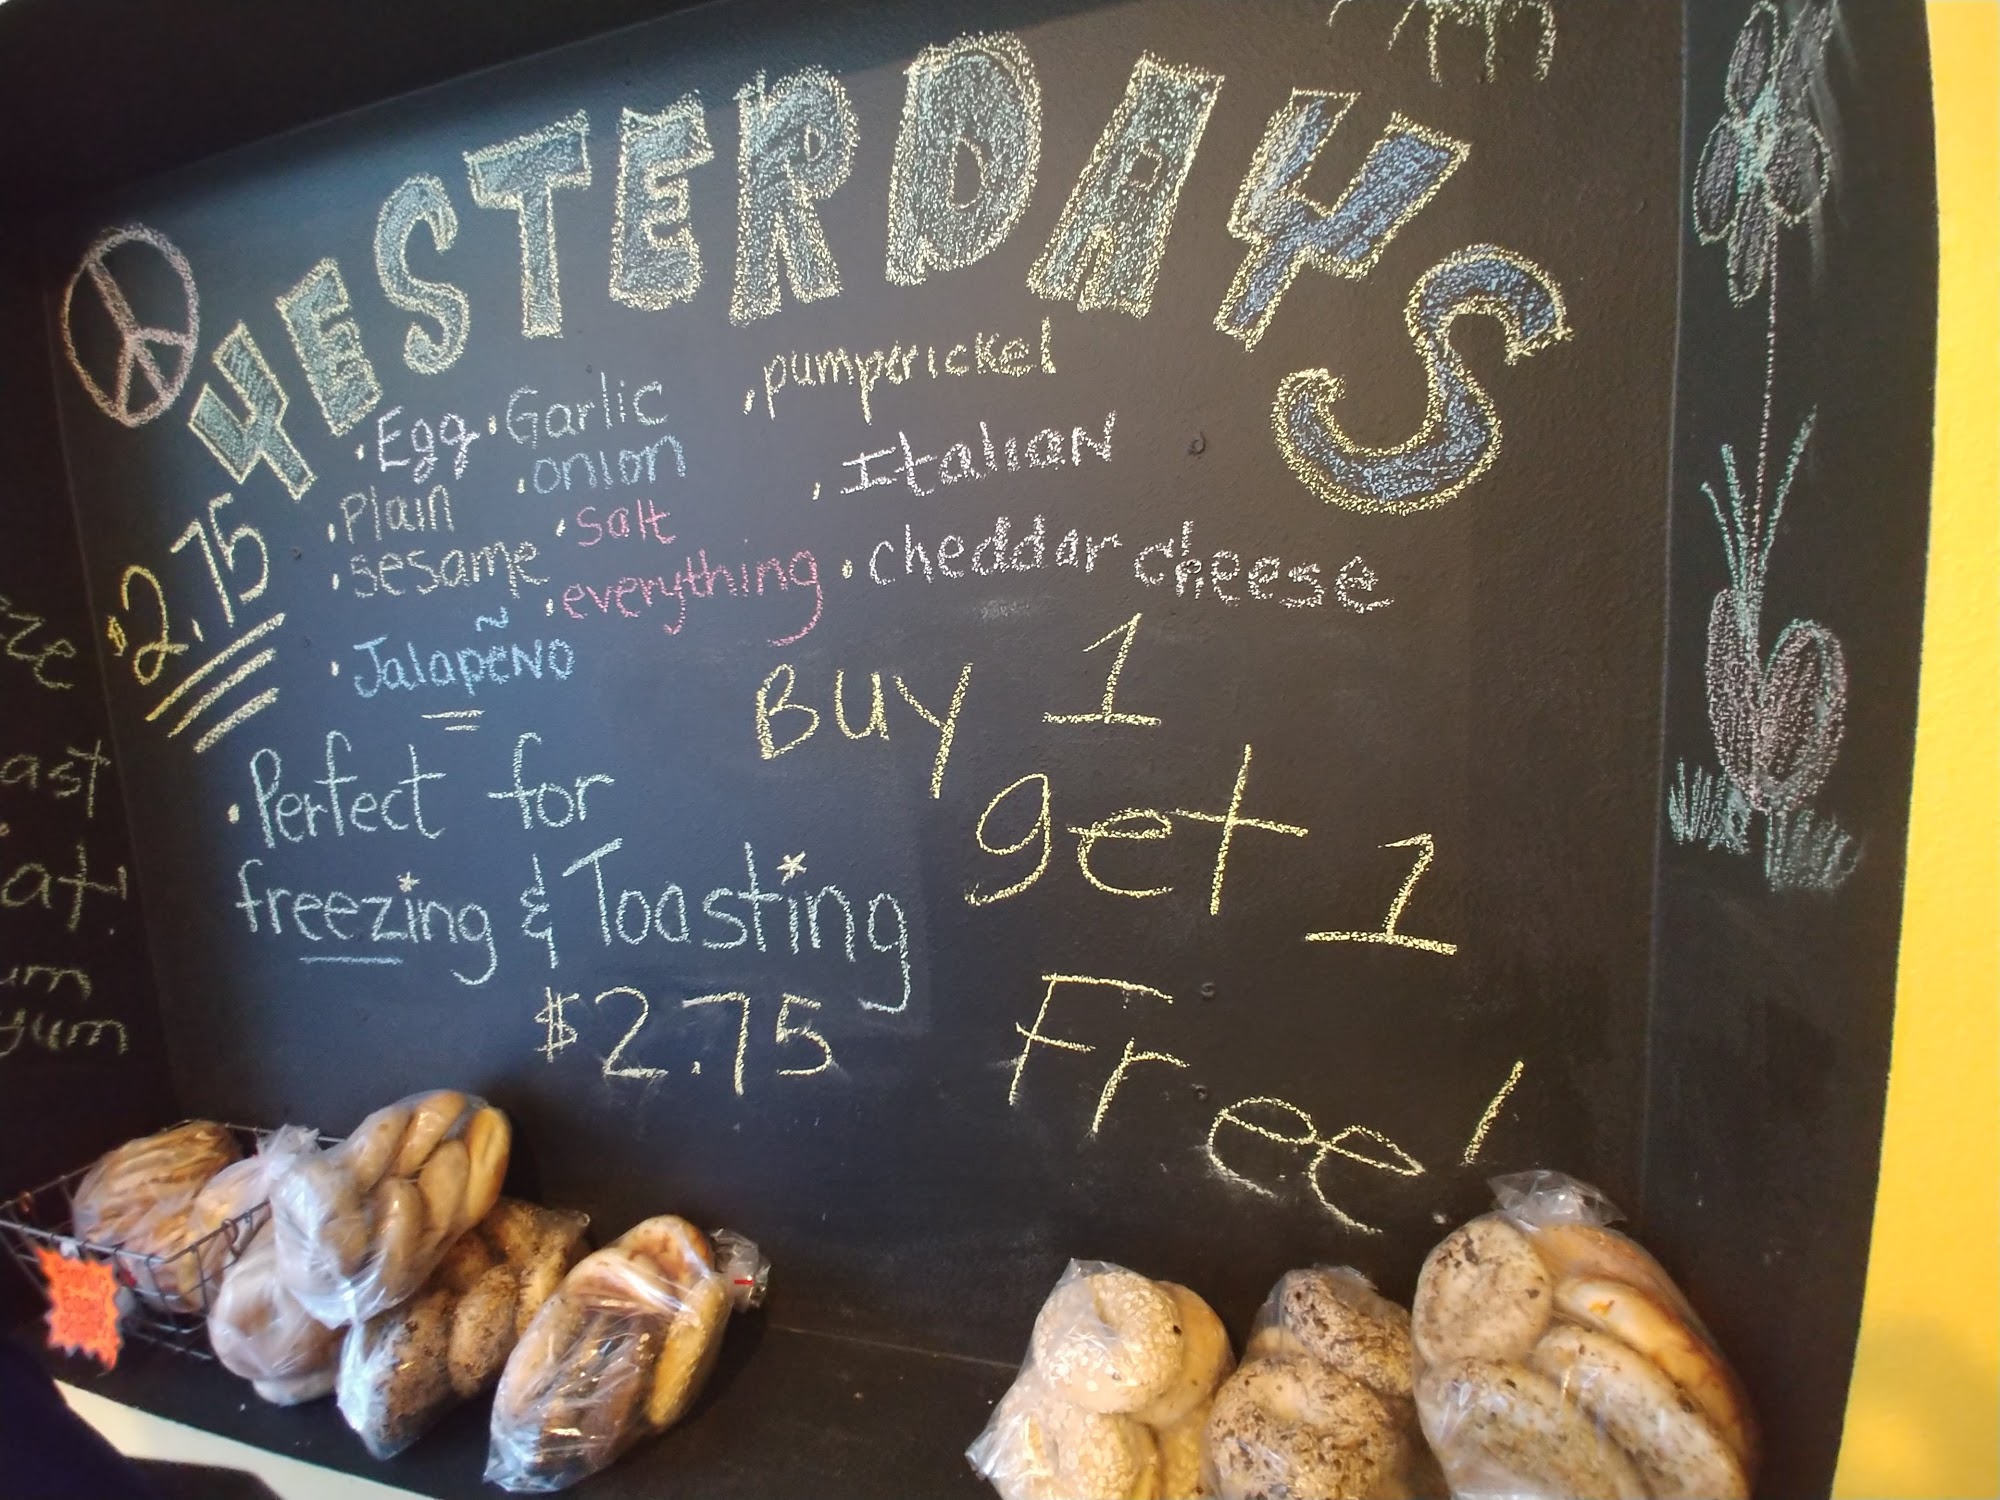 YESTERDAYS
$2.75
• Egg
• Plain
• Sesame
• Jalapeño
• Garlic
• onion
• Salt
• everything
• pumperickel
• Italian
• cheddar cheese
• Perfect for
freezing & Toasting
$2.75
Buy 1
get 1
Free!
ast
at!
um
yum